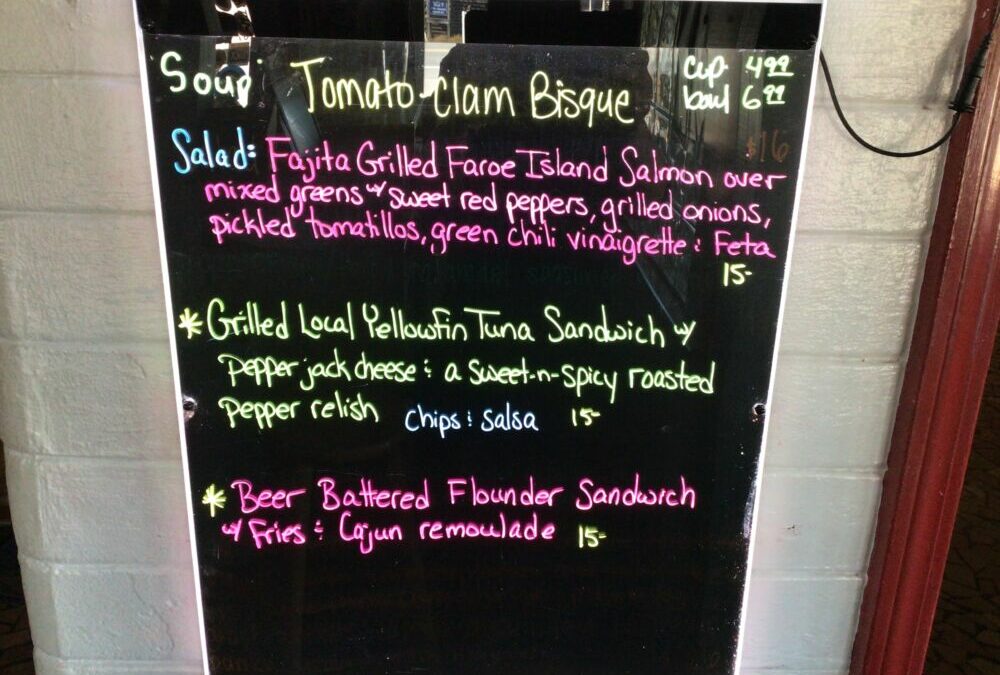 Soup: Tomato-Clam Bisque cup 4.99
bowl 6.99
Salad: Fajita Grilled Faroe Island Salmon over $16
mixed greens w/ sweet red peppers, grilled onions,
pickled tomatillos, green chili vinaigrette & Feta
15-
* Grilled Local Yellowfin Tuna Sandwich w/
pepper jack cheese & a sweet-n-spicy roasted
pepper relish chips & salsa 15-
* Beer Battered Flounder Sandwich
w/ Fries & Cajun remoulade 15-